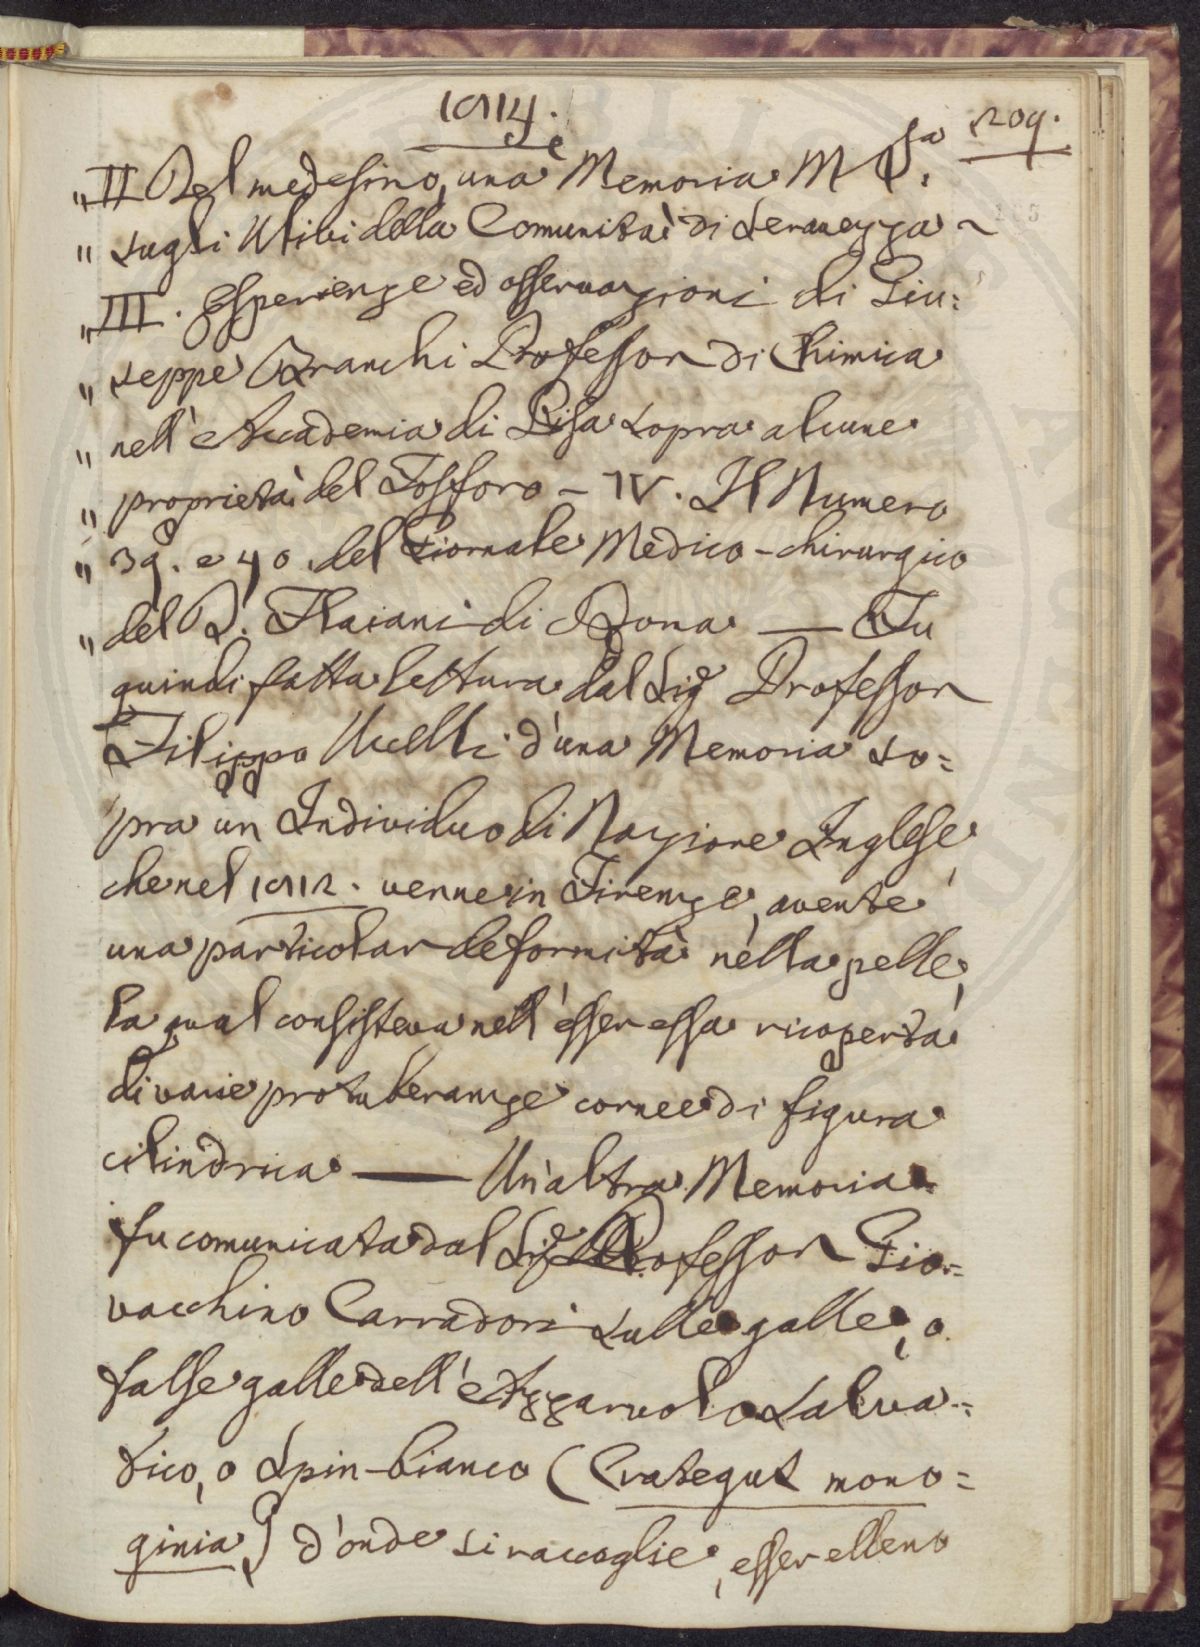 1814.
209.
„ II Del medesimo, una Memoria M Sta.
„ sugli Ulivi della Comunità di Seravezza ~
„ III. Esperienze ed osservazioni di Giu=
„ seppe Branchi Professor di Chimica
„ nell'Accademia di Pisa sopra alcune
„ proprietà del Fosforo – IV. Il Numero
„ 39. e 40. del Giornale Medico-chirurgico
„ del D. Flaiani di Roma — Fu
quindi fatta lettura dal Sig.e Professor
Filippo Uccelli d'una Memoria so=
pra un Individuo di Nazione Inglese,
che nel 1812. venne in Firenze, avente
una particolar deformità nella pelle,
la qual consisteva nell'esser essa ricoperta
di varie protuberanze cornee di figura
cilindrica — Un'altra Memoria
fu comunicata dal Sig.e Professor Gio=
vacchino Carradori sulle galle, o
false galle dell'Azzaruolo salva=
tico, o Spin-bianco (Crategus mono=
ginia) d'onde si raccoglie, esser elleno